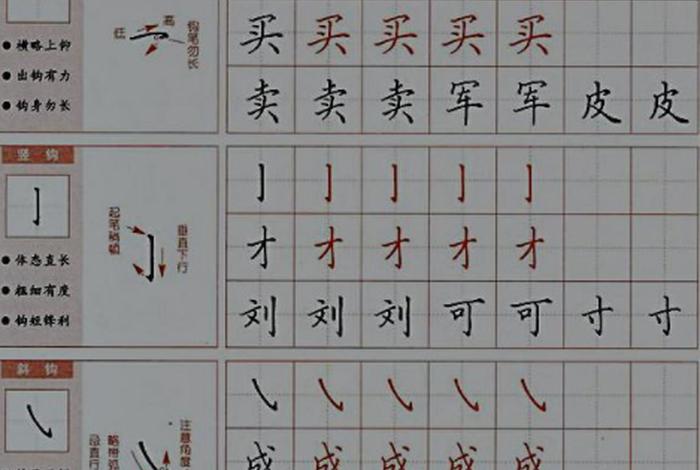 横略上仰
出钩有力
钩身勿长
低
高
钩笔勿长
买 买 买 买 买
卖 卖 卖 军 军 皮 皮
竖 钩
亅
体态直长
粗细有度
钩短锋利
起笔稍顿
垂直下行
亅 亅 亅 亅 亅
才 才 才 才 才
刘 刘 刘 可 可 寸 寸
斜 钩
㇂
略带弧
注意角度
㇂ ㇂ ㇂ ㇂ ㇂
成 成 成 成 成